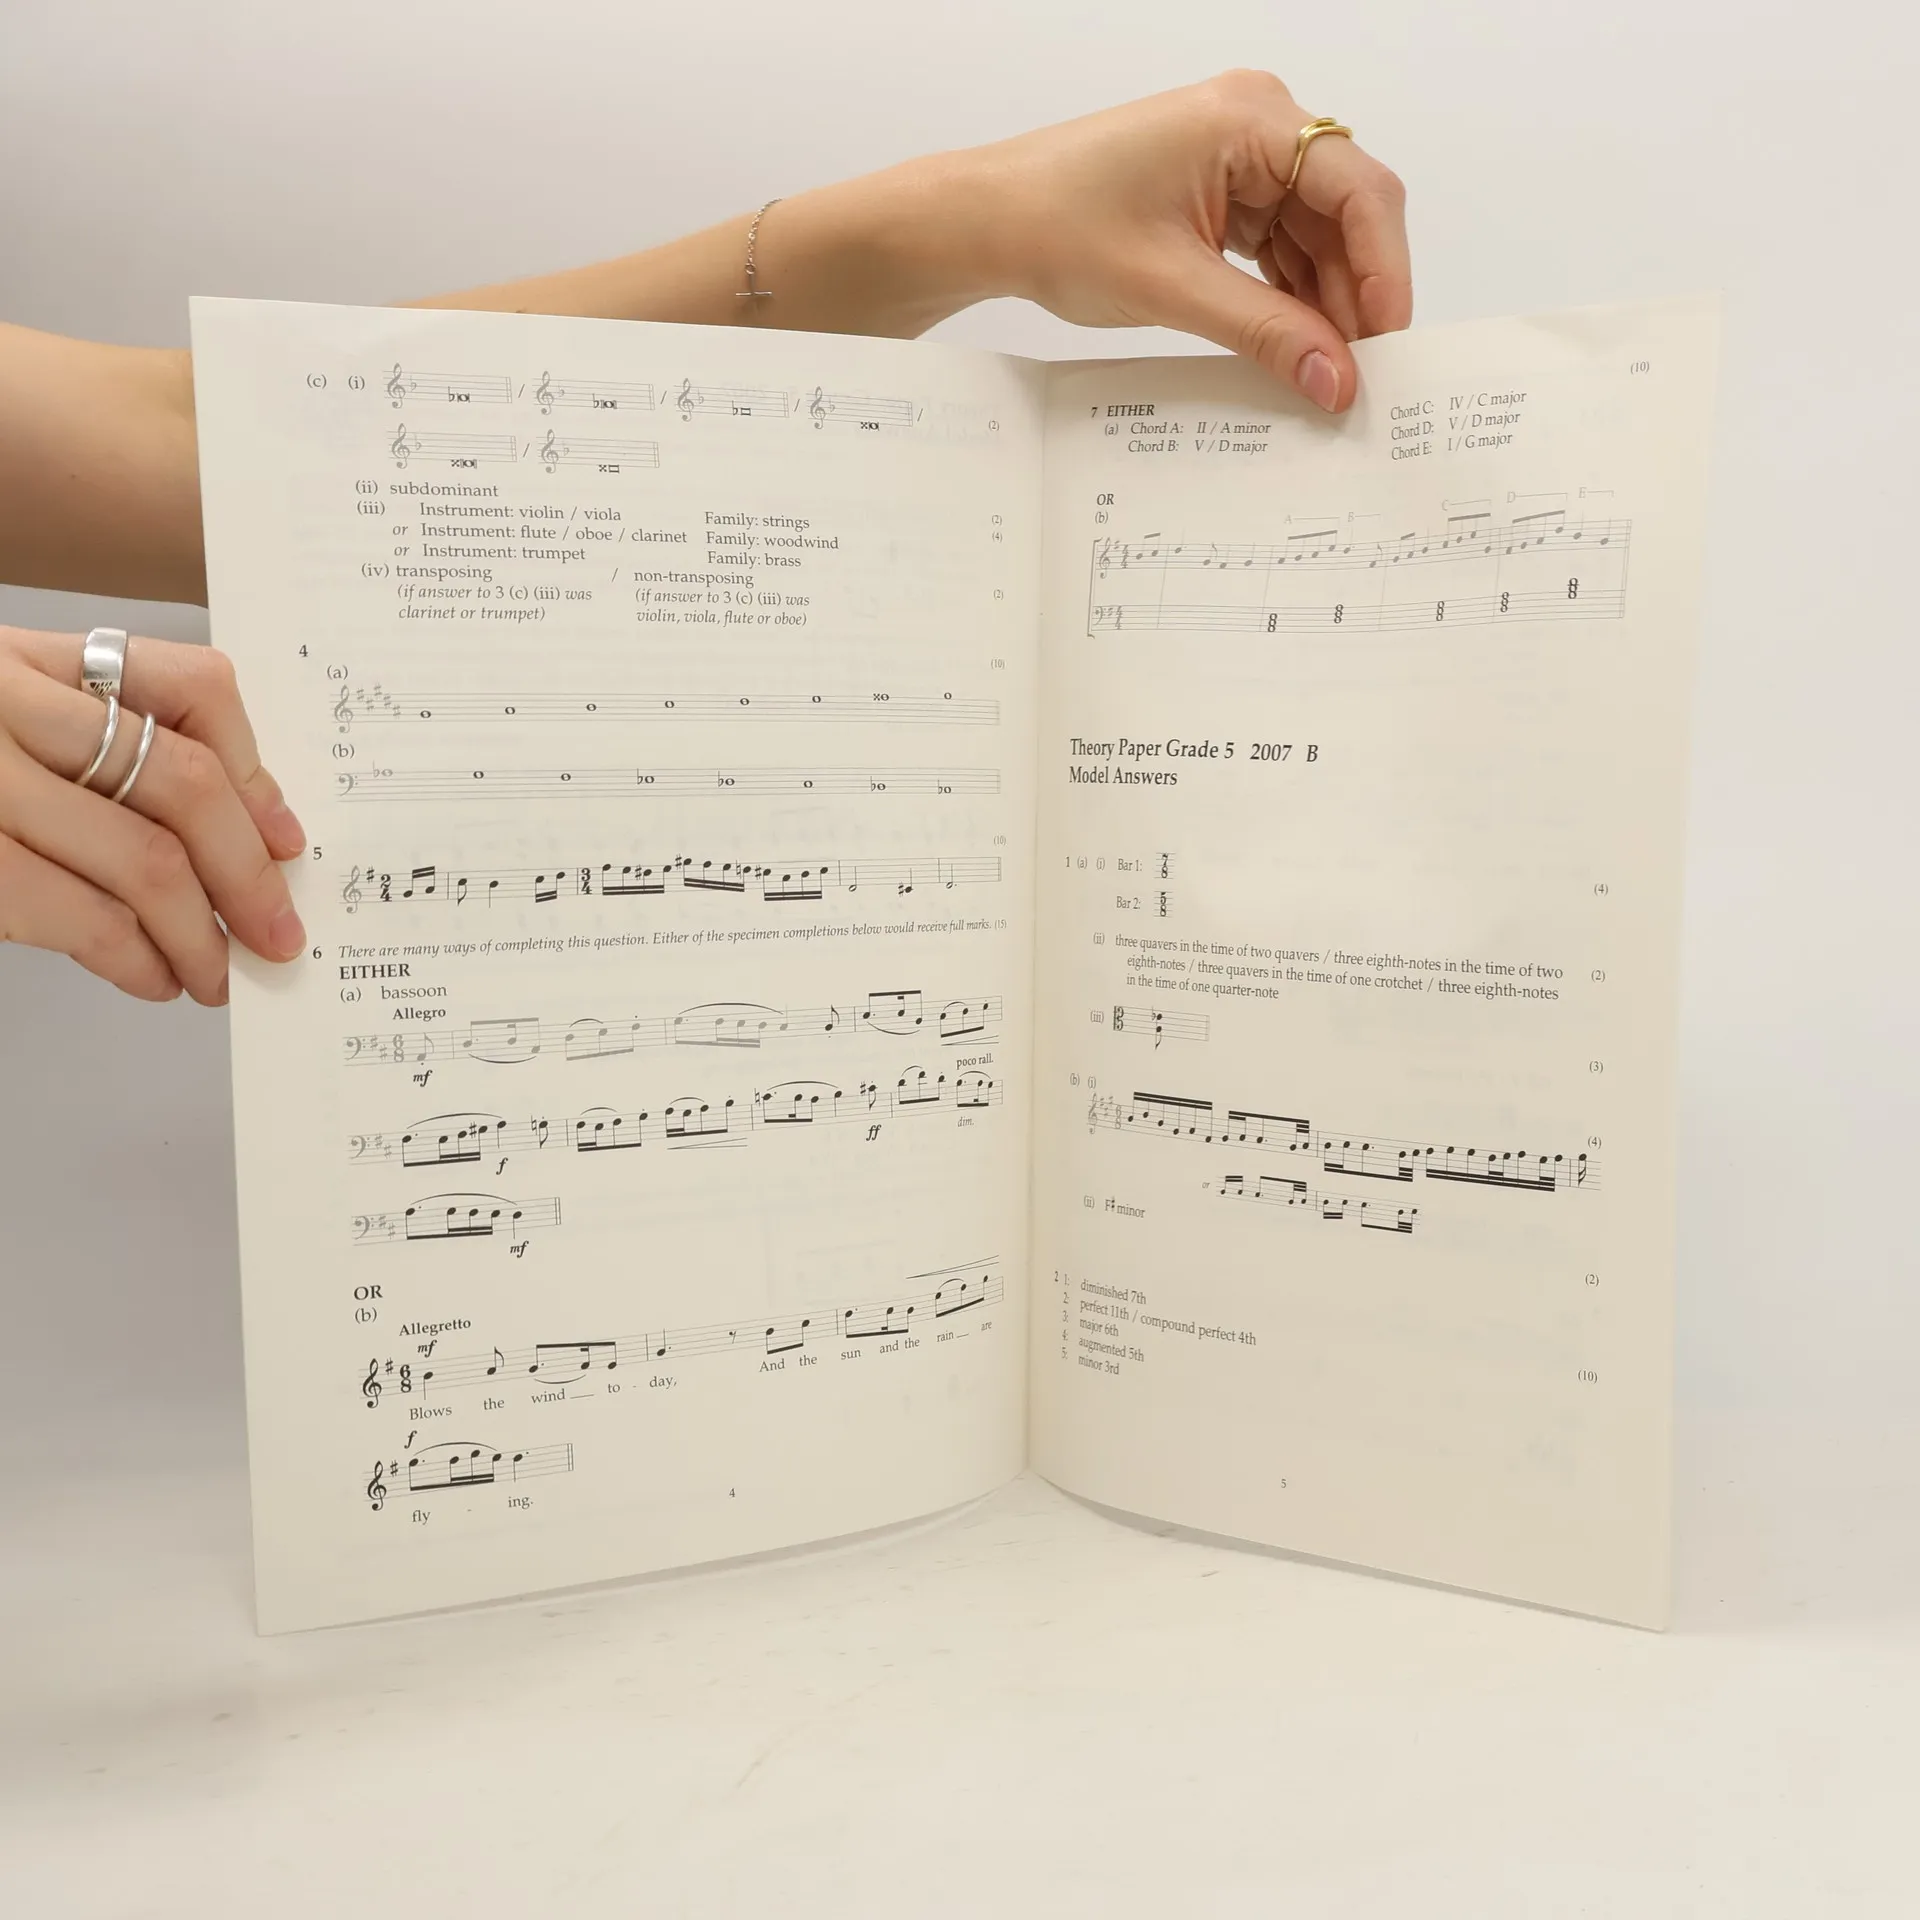 (c) (i) / / / / (2)
/
(ii) subdominant (2)
(iii) Instrument: violin / viola Family: strings (4)
or Instrument: flute / oboe / clarinet Family: woodwind
or Instrument: trumpet Family: brass
(iv) transposing / non-transposing (2)
(if answer to 3 (c) (iii) was (if answer to 3 (c) (iii) was
clarinet or trumpet) violin, viola, flute or oboe)
4 (10)
(a)
(b)
5 (10)
2 4 3 4
6 There are many ways of completing this question. Either of the specimen completions below would receive full marks. (15)
EITHER
(a) bassoon
Allegro
6 8
mf
poco rall.
f ff dim.
mf
OR
(b)
Allegretto
mf
6 8
Blows the wind to - day, And the sun and the rain are
f
fly - ing.
4
(10)
7 EITHER
(a) Chord A: II / A minor Chord C: IV / C major
Chord B: V / D major Chord D: V / D major
Chord E: I / G major
OR
(b)
A B C D E
4 4
4 4
Theory Paper Grade 5 2007 B
Model Answers
1 (a) (i) Bar 1: 7 8
Bar 2: 5 8 (4)
(ii) three quavers in the time of two quavers / three eighth-notes in the time of two
eighth-notes / three quavers in the time of one crotchet / three eighth-notes
in the time of one quarter-note (2)
(iii) (3)
(b) (i) (4)
6 8
or
(ii) F♯ minor (2)
2 1: diminished 7th
2: perfect 11th / compound perfect 4th
3: major 6th
4: augmented 5th
5: minor 3rd (10)
5